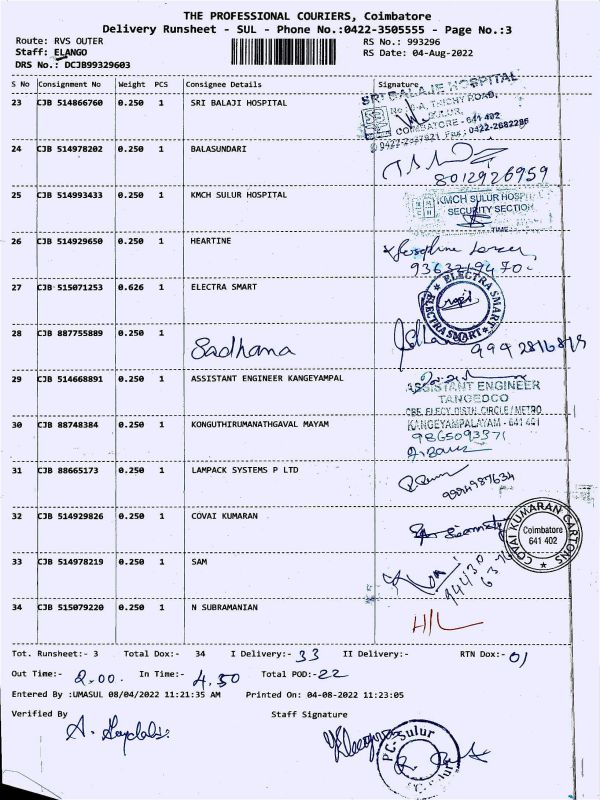 THE PROFESSIONAL COURIERS, Coimbatore
Delivery Runsheet - SUL - Phone No.:0422-3505555 - Page No.:3
Route: RVS OUTER
RS No.: 993296
Staff: ELANGO
RS Date: 04-Aug-2022
DRS No.: DCJB99329603
S No Consignment No Weight PCS Consignee Details Signature
23 CJB 514866760 0.250 1 SRI BALAJI HOSPITAL
SRI BALAJE HOSPITAL
TRICHY ROAD,
SULUR,
COIMBATORE - 641 402
24 CJB 514978202 0.250 1 BALASUNDARI
8012926959
25 CJB 514993433 0.250 1 KMCH SULUR HOSPITAL
KMCH SULUR HOSPI
SECURITY SECTION
TIME
26 CJB 514929650 0.250 1 HEARTINE
9363219470
27 CJB 515071253 0.626 1 ELECTRA SMART
ELECTRA SMART
ELECTRA SMART
28 CJB 887755889 0.250 1 Sadhana
29 CJB 514668891 0.250 1 ASSISTANT ENGINEER KANGEYAMPAL
ASSISTANT ENGINEER
TANGEDCO
CBE. ELECY. DISTN. CIRCLE/METRO
30 CJB 88748384 0.250 1 KONGUTHIRUMANATHGAVAL MAYAM
KANGEYAMPALAYAM - 641 401
9865093371
31 CJB 88665173 0.250 1 LAMPACK SYSTEMS P LTD
9994987634
32 CJB 514929826 0.250 1 COVAI KUMARAN
COVAI KUMARAN CARTONS
Coimbatore
641 402
33 CJB 514978219 0.250 1 SAM
34 CJB 515079220 0.250 1 N SUBRAMANIAN
H/L
Tot. Runsheet:- 3 Total Dox:- 34 I Delivery:- 33 II Delivery:- RTN Dox:- 01
Out Time:- 2.00. In Time:- 4.50 Total POD:- 22
Entered By :UMASUL 08/04/2022 11:21:35 AM Printed On: 04-08-2022 11:23:05
Verified By Staff Signature
PC-Sulur